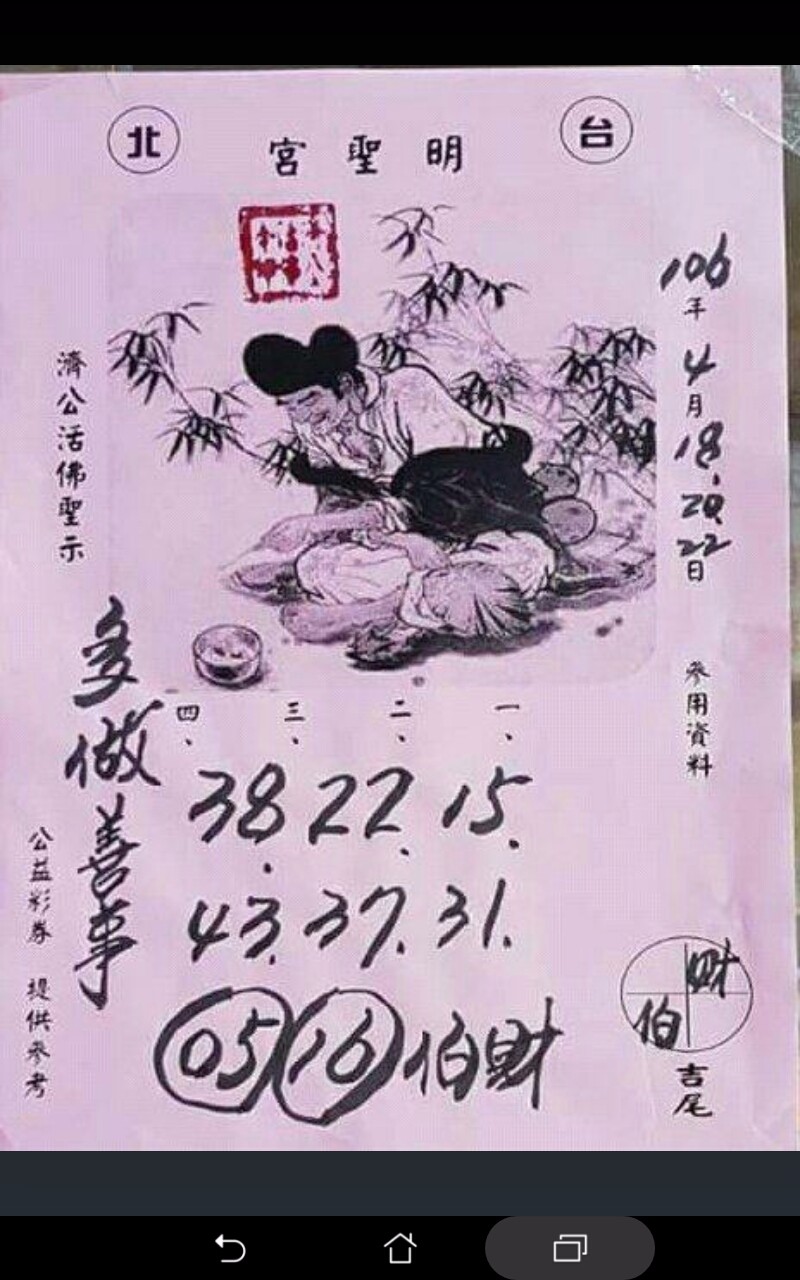 台北
明聖宮
106年4月18.20.22日
參用資料
濟公活佛聖示
一、二、三、四、
15. 22. 38.
31. 37. 43.
財伯 16 05
多做善事
公益彩券 提供參考
財
伯
吉尾